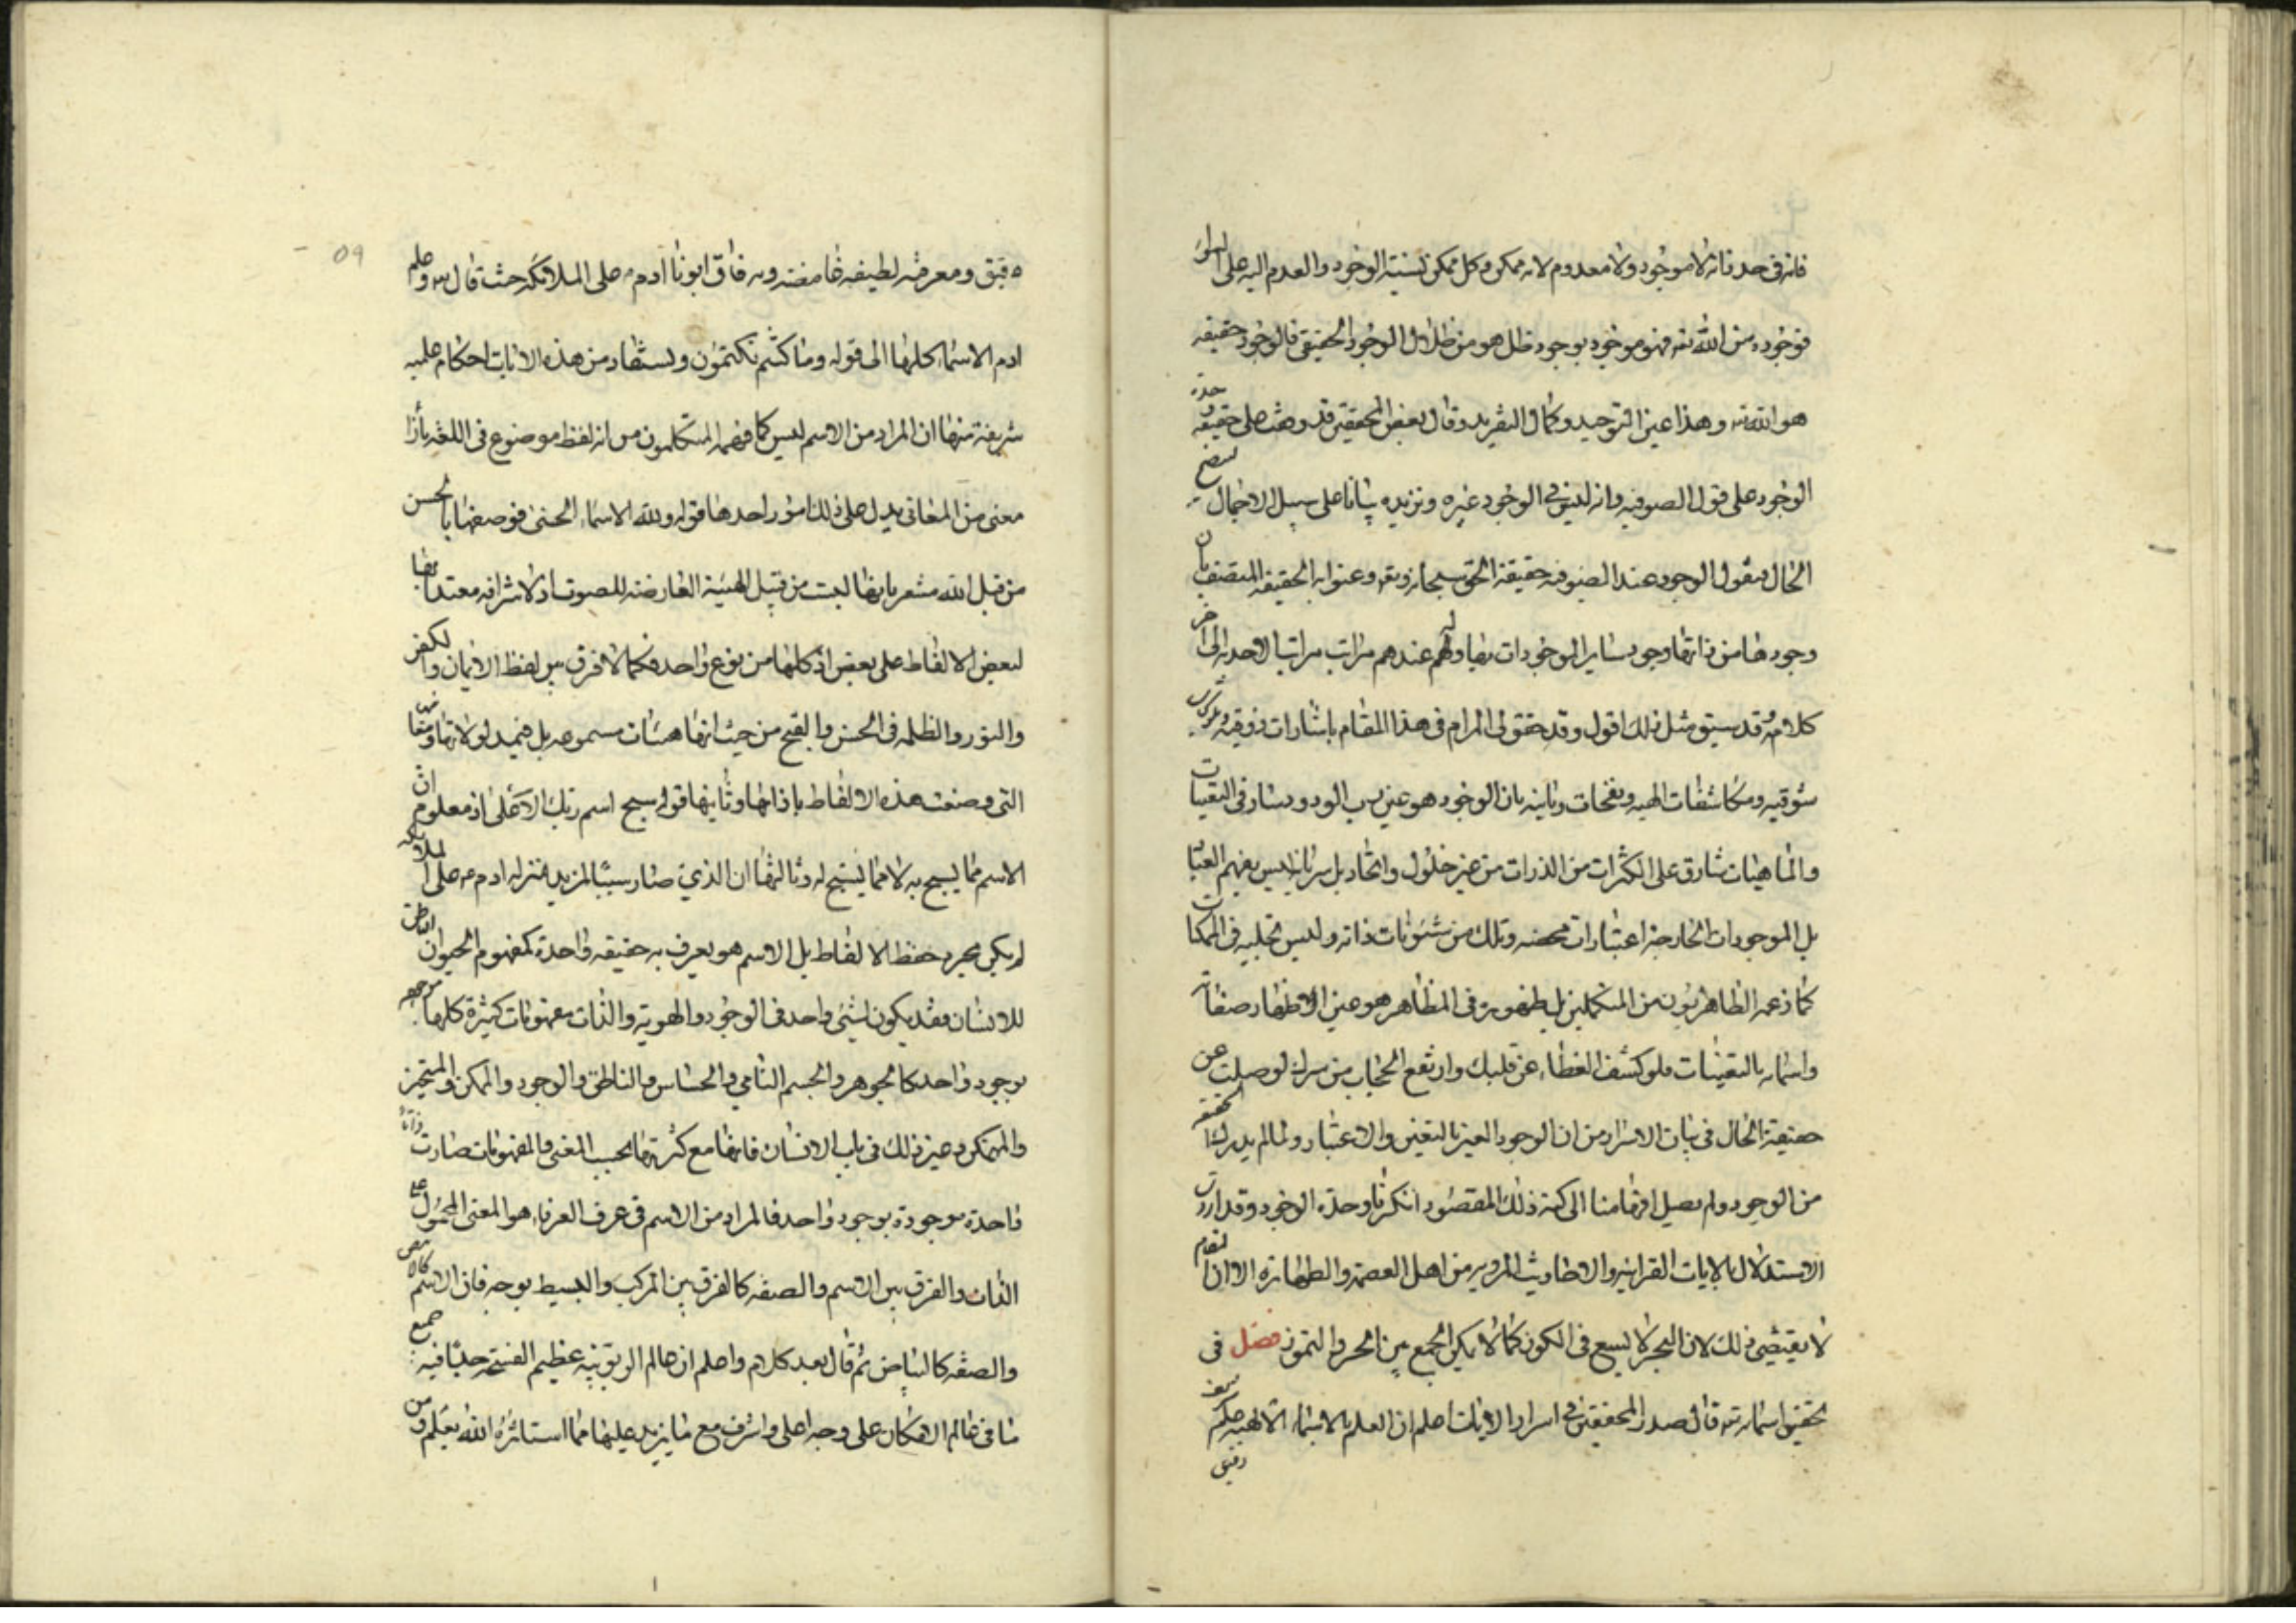 فانه فى حد ذاته لا موجود ولا معدوم لانه ممكن وكل ممكن نسبة الوجود والعدم اليه على السواء
فوجوده من الله تعه فهو موجود بوجود ظل هو من ظلال الوجود الحقيقى فالوجود حقيقه
هو الله تعه وهذا عين التوحيد وكمال التفريد وقال بعض المحققين قد وقفت على حقيقه وحدة
الوجود على قول الصوفيه وانه ليس فى الوجود غيره ونزيده بيانا على سبيل الاجمال ليتضح
الحال فنقول الوجود عند الصوفيه حقيقة الحق سبحانه وتعه وعنوا به الحقيقه المتصف بان
وجودها من ذاتها وجود ساير الموجودات بها ولهم عندهم مراتب مراتبا الاحديه الى اخر
كلامه وقد سبق مثل ذلك اقول وقد حقق لى المرام فى هذا المقام باشارات ذوقيه
شوقيه ومكاشفات الهيه ونفحات ربانيه بان الوجود هو عين رب الودود سار فى التعينات
والماهيات شارق على الكثرات من الذرات من غير حلول واتحاد بل سريانه ليس بفهم العبا
بل الموجودات الخارجة اعتبارات محضه وتلك من شئونات ذاته وليس تجليه فى الممكنات
كما زعمه الظاهريون من المتكلمين بل ظهوره فى المظاهر هو عين الاظهار صفاته
واسمائه بالتعينات فلو كشف الغطاء عن قلبك وارتفع الحجاب من سرك لوصلت عن
حقيقة الحال فى بيان الاسرار من ان الوجود العين بالتعين والاعتبار ولما لم يدرك الحقيقه
من الوجود ولم يصل افهامنا الى كنه ذلك المقصود انكرنا وحدة الوجود وقد اردت
الاستدلال بالايات القرانيه والاحاديث المرويه من اهل العصمة والطهارة الا ان المقام
لا يقتضى ذلك لان البحر لا يسع فى الكوز كما لا يمكن الجمع بين الحر والتموز فصل فى
تحقيق اسمائه تعه قال صدر المحققين فى اسرار الايات اعلم ان العلم بالاسماء الالهيه علم شريف
دقيق
دقيق ومعرفه لطيفه غامضه وبه فاق ابونا ادم ع على الملائكه حيث قال تعه وعلم
ادم الاسماء كلها الى قوله وما كنتم تكتمون ويستفاد من هذه الايات احكام علميه
شريفة منها ان المراد من الاسم ليس كما فهمه المتكلمون من انه لفظ موضوع فى اللغه بأزا
معنى من المعانى يدل على ذلك امور احدها قوله ولله الاسماء الحسنى فوصفها بالحسن
من قبل الله مشعر بانها ليست من قبيل الهيئة العارضه للصوت اذ لا شرافه معتدا بها
لبعض الالفاظ على بعض اذ كلها من نوع واحد فكما لا فرق بين لفظ الايمان والكفر
والنور والظلمه فى الحسن والقبح من حيث انها هيئات مسموعه بل فيمدلولاتها ومعانيها
التى وضعت هذه الالفاظ بإذائها وثانيها قوله سبح اسم ربك الاعلى اذ معلوم ان
الاسم مما يسبح به لا مما يسبح له وثالثها ان الذى صار سببا لمزيد منزله ادم ع على الملائكه
لم يكن مجرد حفظ الالفاظ بل الاسم هو يعرف به حقيقه واحدة كمفهوم الحيوان الناطق
للانسان فقد يكون لشئ واحد فى الوجود والهوية والذات مفهومات كثيرة كلها موجوده
بوجود واحد كالجوهر والجسم النامى والحساس والناطق والوجود والممكن والمتحيز
والمتمكن وغير ذلك فى باب الانسان فانها مع كثرتها بحسب المعنى والمفهومات صارت ذاتا
واحدة موجودة بوجود واحد فالمراد من الاسم فى عرف العرفاء هو المعنى المحمول على
الذات والفرق بين الاسم والصفه كالفرق بين المركب والبسيط بوجه فان الاسم كالابيض
والصفه كالبياض ثم قال بعد كلام واعلم ان عالم الربوبيه عظيم الفسحه جدا فيه جميع
ما فى عالم الامكان على وجه اعلى واشرف مع ما يزيد عليها مما استاثره الله بعلم ومن